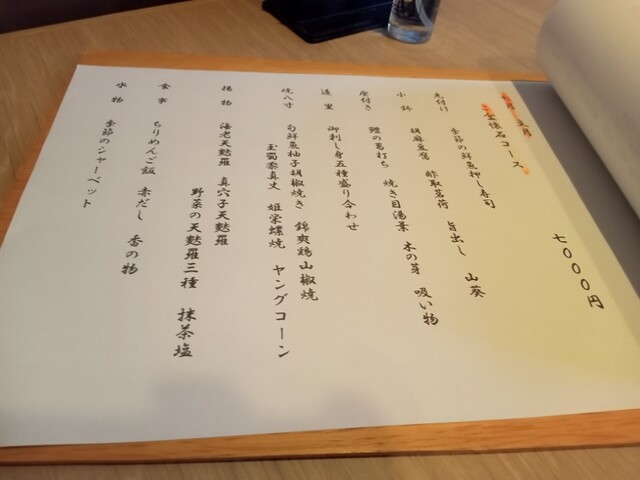 文月
懐石コース
七〇〇〇円
先付け 季節の鮮魚押し寿司
小鉢 胡麻豆腐 酢取茗荷 旨出し 山葵
座付き 鱧の葛打ち 焼き目湯葉 木の芽 吸い物
造里 御刺し身五種盛り合わせ
焼八寸 旬鮮魚柚子胡椒焼き 錦爽鶏山椒焼
玉蜀黍真丈 姫栄螺焼 ヤングコーン
揚物 海老天麩羅 真穴子天麩羅
野菜の天麩羅三種 抹茶塩
食事 ちりめんご飯 赤だし 香の物
水物 季節のシャーベット